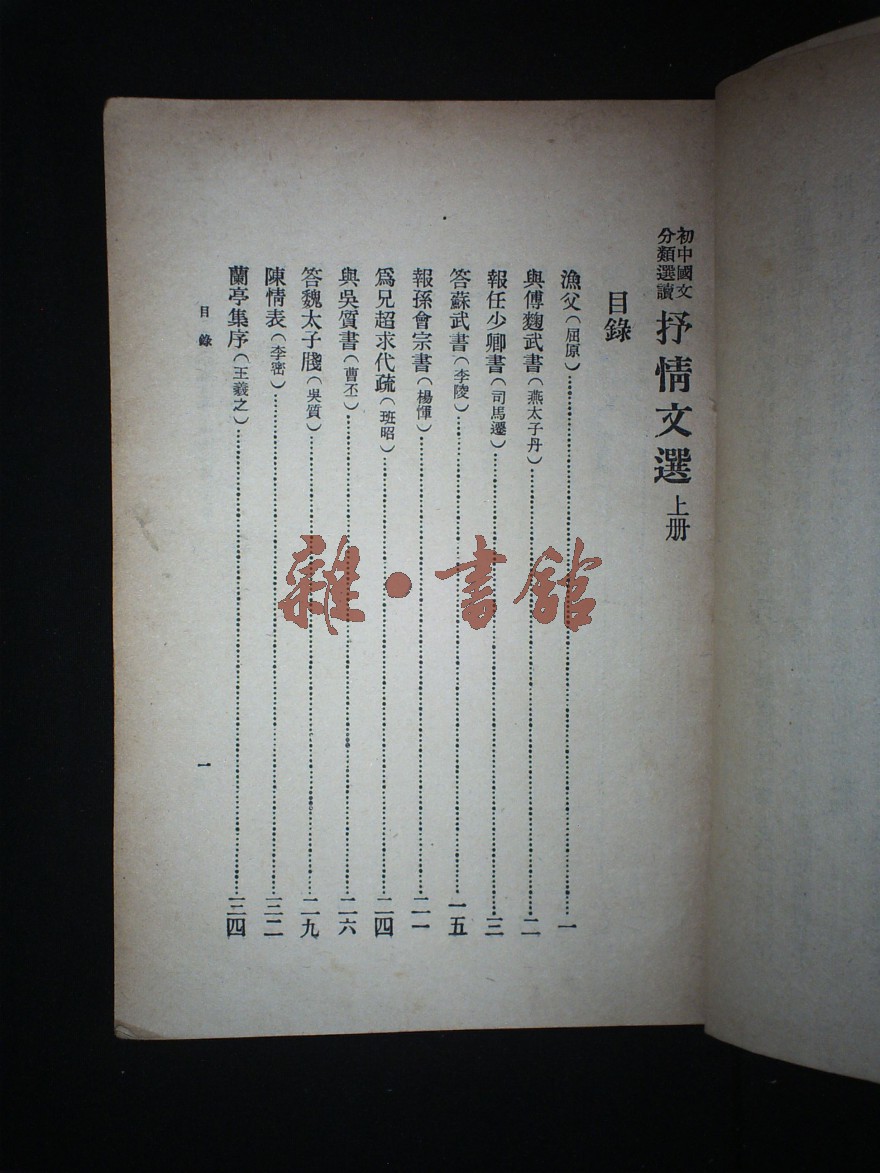 初中國文分類選讀 抒情文選 上册
目錄
漁父（屈原）……一
與傅麴武書（燕太子丹）……二
報任少卿書（司馬遷）……三
答蘇武書（李陵）……一五
報孫會宗書（楊惲）……二一
爲兄超求代疏（班昭）……二四
與吳質書（曹丕）……二六
答魏太子牋（吳質）……二九
陳情表（李密）……三二
蘭亭集序（王羲之）……三四
目錄
一
雜·書館